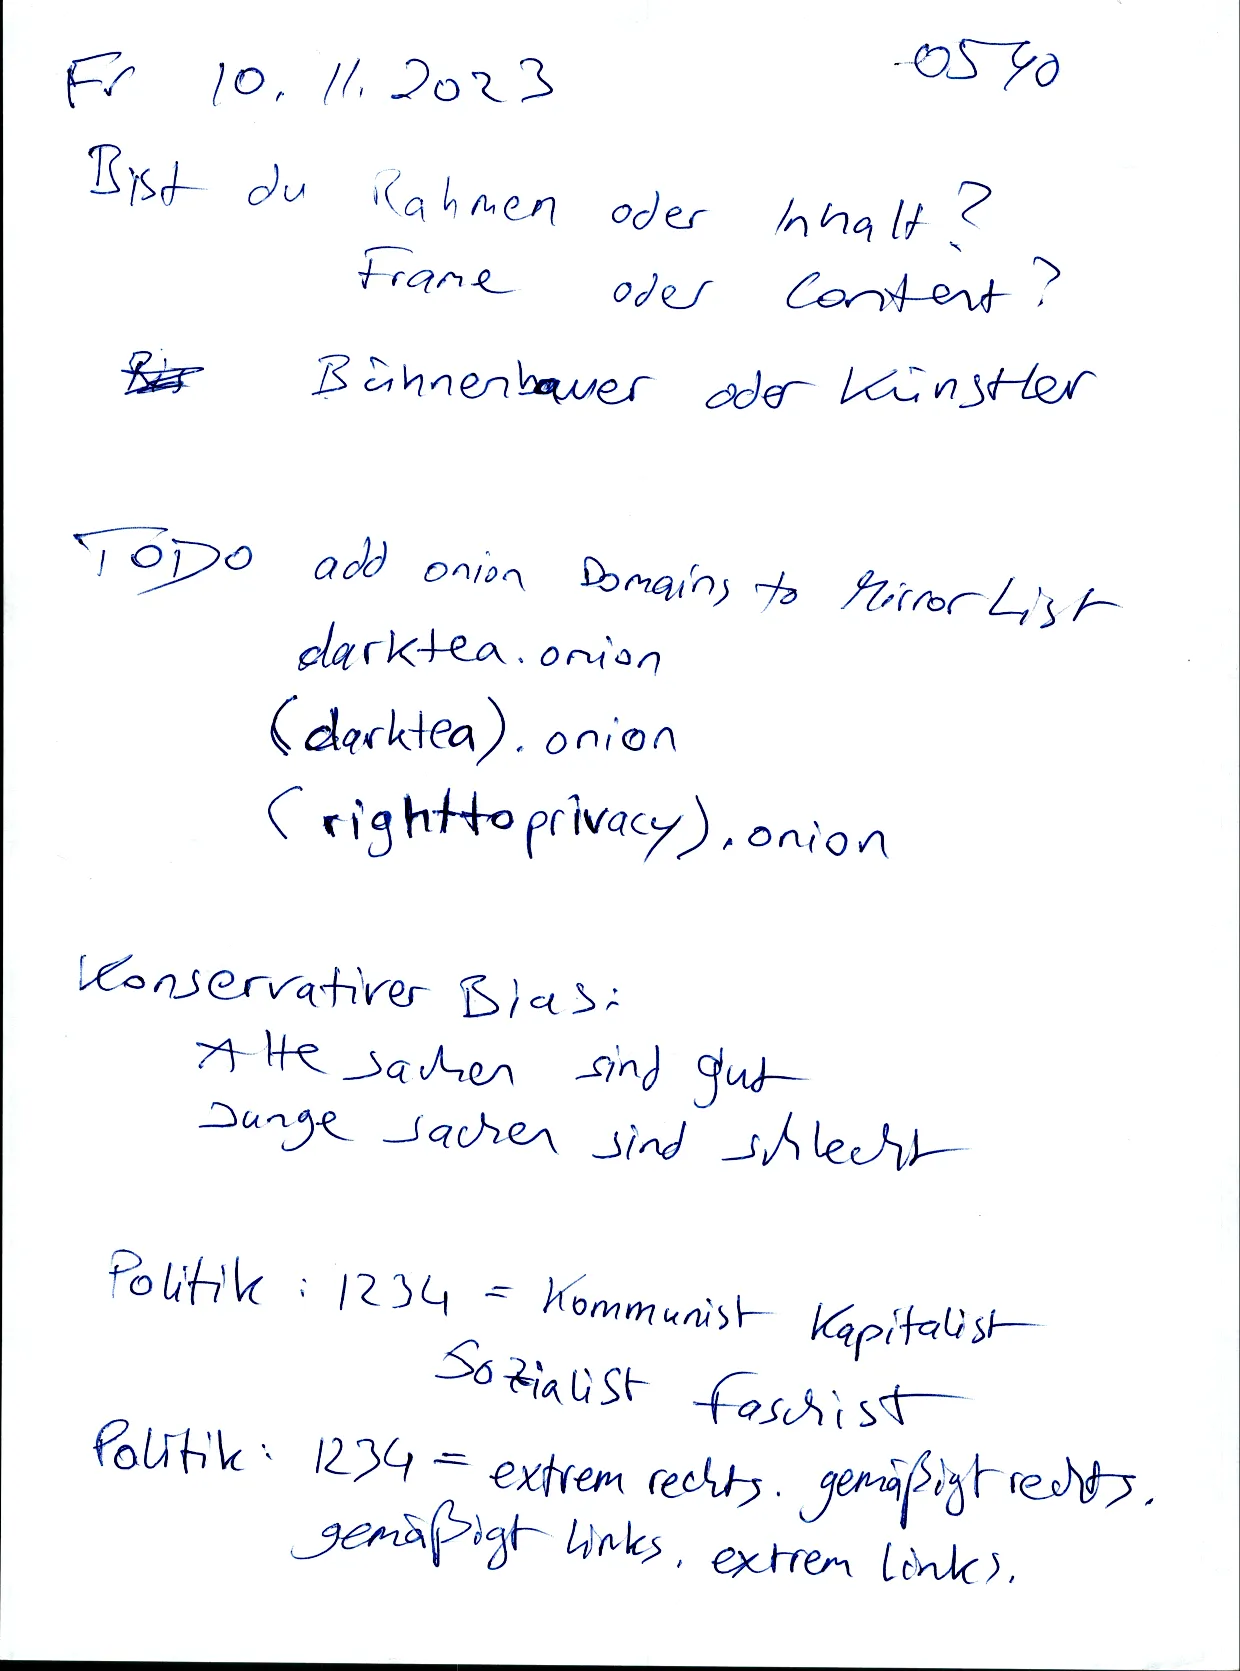 Fr 10.11.2023 0540
Bist du Rahmen oder Inhalt?
Frame oder Content?
Bühnenbauer oder Künstler
TODO add onion Domains to Mirror List
darktea.onion
(darktea).onion
(righttoprivacy).onion
Konservativer Bias:
Alte sachen sind gut
Junge sachen sind schlecht
Politik: 1234 = Kommunist Kapitalist
Sozialist Faschist
Politik: 1234 = extrem rechts. gemäßigt rechts.
gemäßigt links. extrem links.